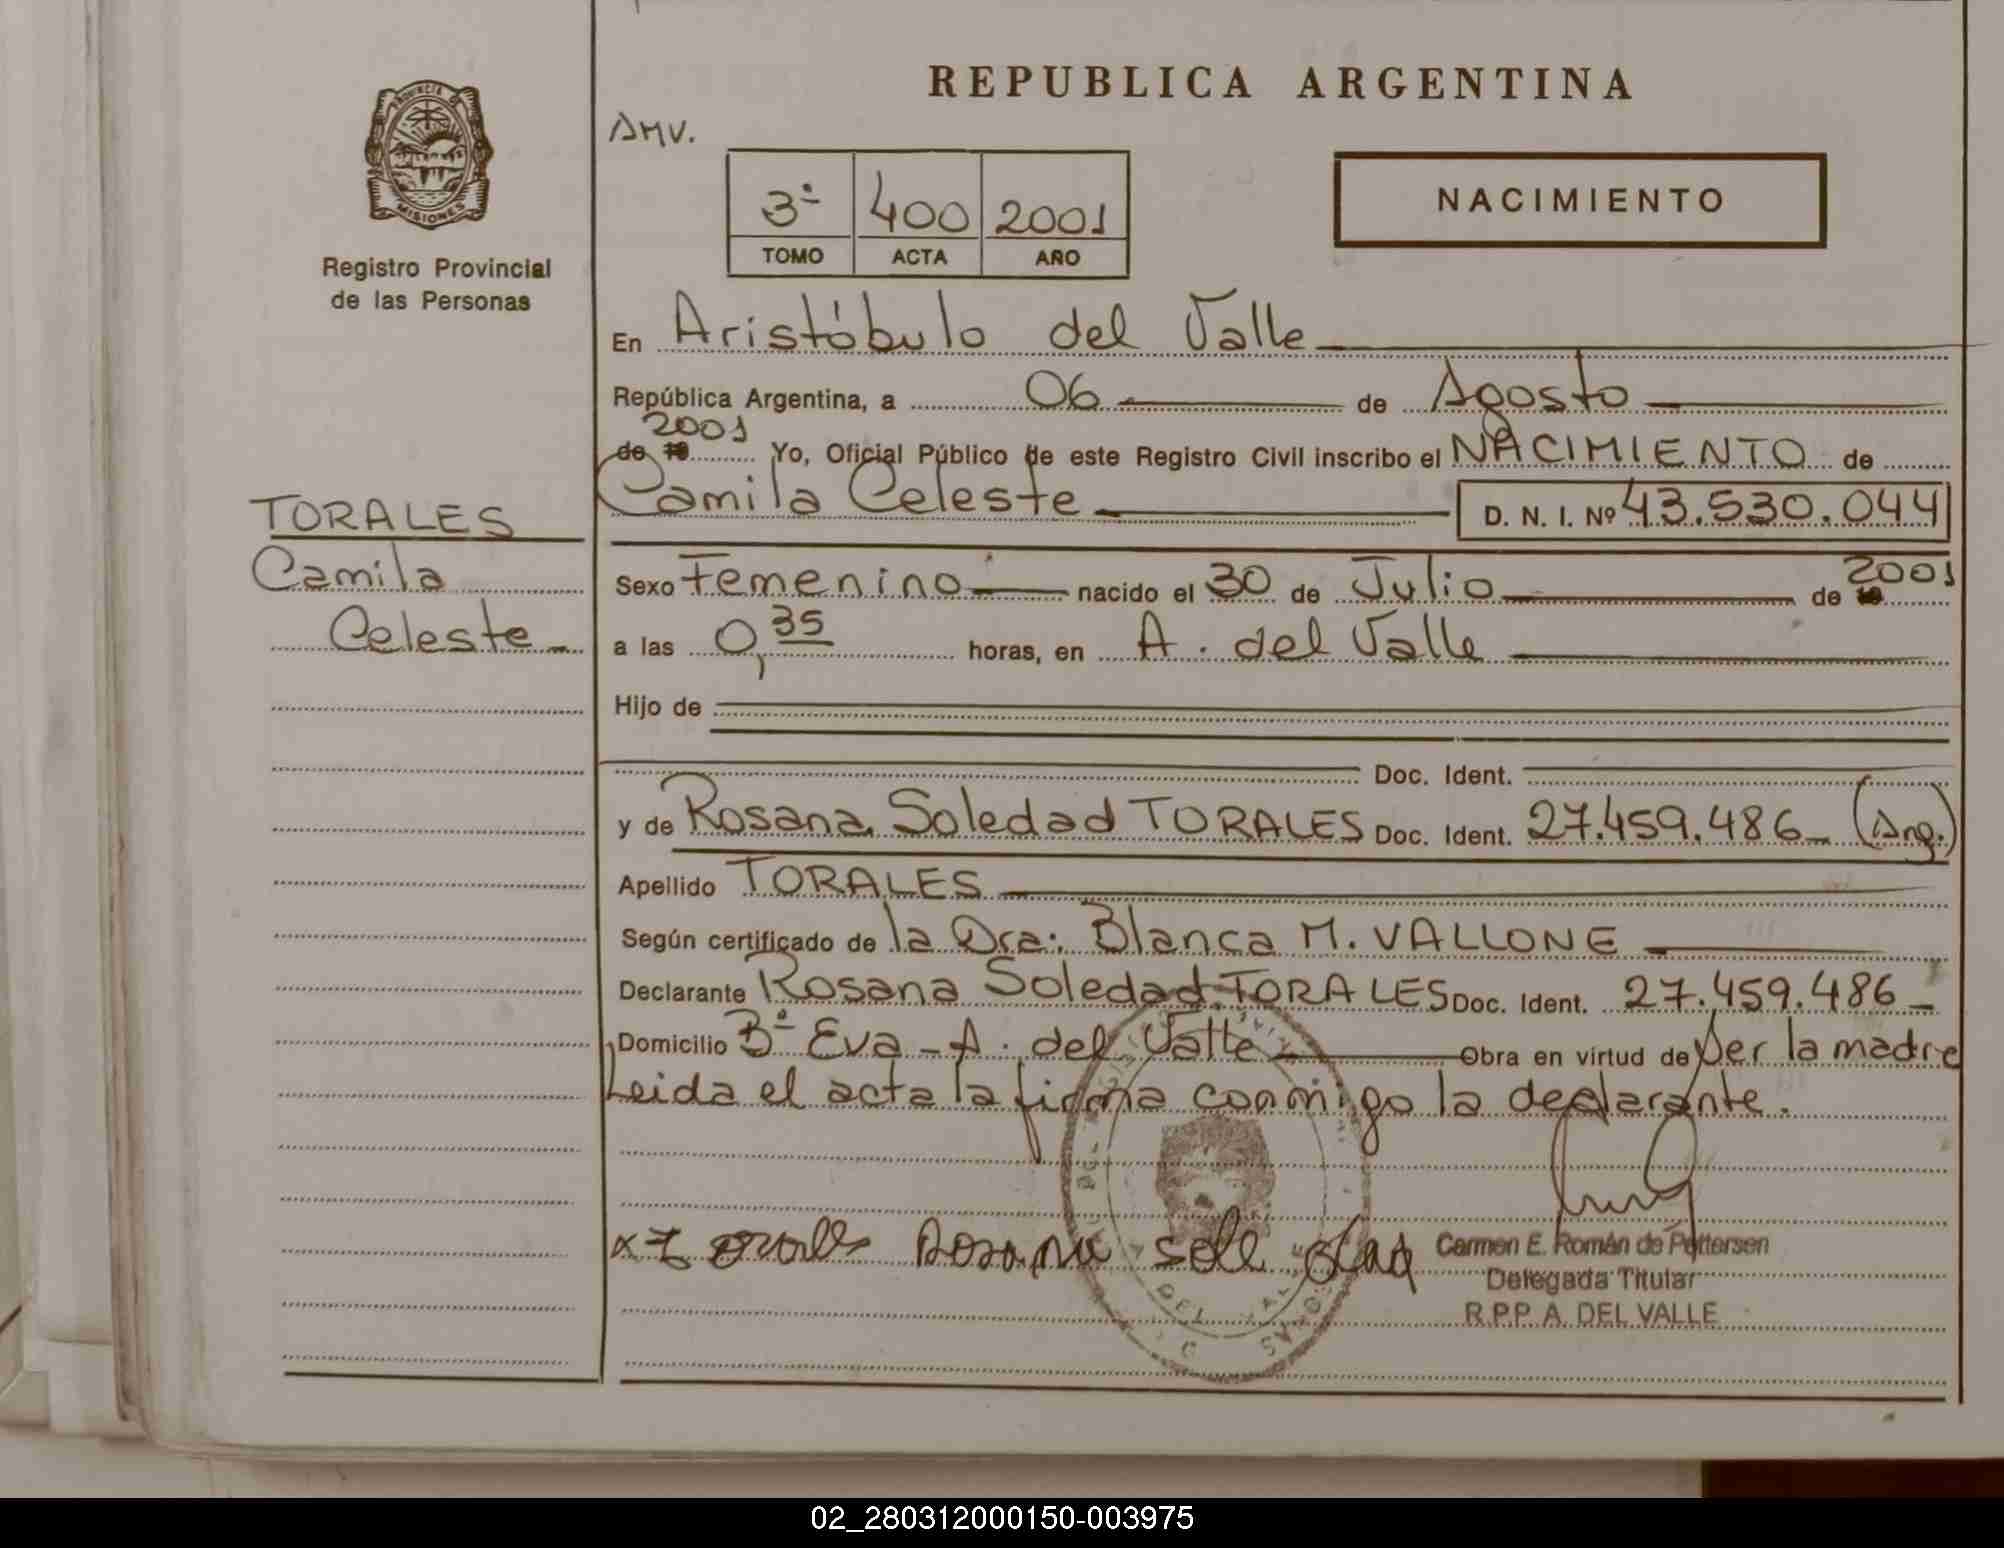 REPUBLICA ARGENTINA
PROVINCIA DE
MISIONES
Registro Provincial
de las Personas
AMV.
3º 400 2001
TOMO ACTA AÑO
NACIMIENTO
En Aristóbulo del Valle
República Argentina, a 06 de Agosto
de 19 2001 Yo, Oficial Público de este Registro Civil inscribo el NACIMIENTO de
Camila Celeste D. N. I. Nº 43.530.044
TORALES
Camila
Celeste
Sexo Femenino nacido el 30 de Julio de 19 2001
a las 0,35 horas, en A. del Valle
Hijo de
Doc. Ident.
y de Rosana Soledad TORALES Doc. Ident. 27.459.486 (Arg.)
Apellido TORALES
Según certificado de la Dra: Blanca M. VALLONE
Declarante Rosana Soledad TORALES Doc. Ident. 27.459.486
Domicilio Bº Eva - A. del Valle Obra en virtud de Ser la madre
Leida el acta la firma conmigo la declarante.
Rosana
Carmen E. Román de Pettersen
Delegada Titular
R.P.P. A. DEL VALLE
DEL VALLE
02_280312000150-003975